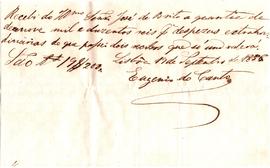 Recebi do Ill.mo Snr. José de Brito a quantia de
dezenove mil e duzentos reis p.ª despezas extraordi
narias de que passei dois recibos que de um valera.
São R.s 19$200.
Lisboa 11 de Setembro de 1886
Eugenio do Canto